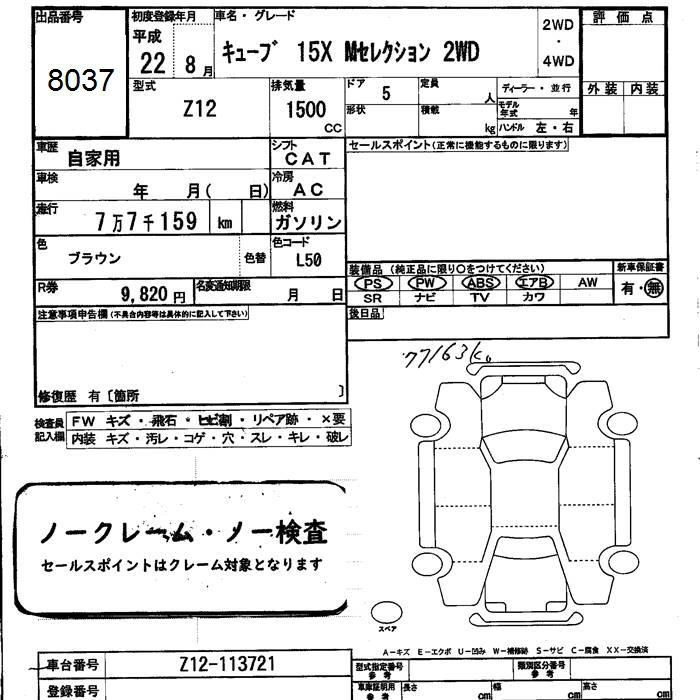 出品番号 初度登録年月 車名・グレード 2WD・4WD 評価点
8037 平成 22 8月 キューブ 15X Mセレクション 2WD
型式 排気量 ドア 5 定員 人 ディーラー・並行 外装 内装
Z12 1500 CC 形状 積載 kg モデル年式 年 ハンドル 左・右
車歴 自家用 シフト CAT セールスポイント(正常に機能するものに限ります)
車検 年 月( 日) 冷房 AC
走行 7万7千159 km 燃料 ガソリン
色 ブラウン 色替 色コード L50
装備品 (純正品に限り○をつけてください) 新車保証書
PS PW ABS エアB AW 有・無
SR ナビ TV カワ
R券 9,820円 名変通知期限 月 日
後日品
注意事項申告欄(不具合内容等は具体的に記入して下さい)
77163k。
修復歴 有〔箇所 〕
検査員記入欄 FW キズ・飛石・ヒビ割・リペア跡・×要
内装 キズ・汚レ・コゲ・穴・スレ・キレ・破レ
ノークレーム・ノー検査
セールスポイントはクレーム対象となります
スペア
A-キズ E-エクボ U-凹み W-補修跡 S-サビ C-腐食 XX-交換済
車台番号 Z12-113721 型式指定番号 参考 類別区分番号 参考
登録番号 車庫証明用 参考 長さ cm 幅 cm 高さ cm